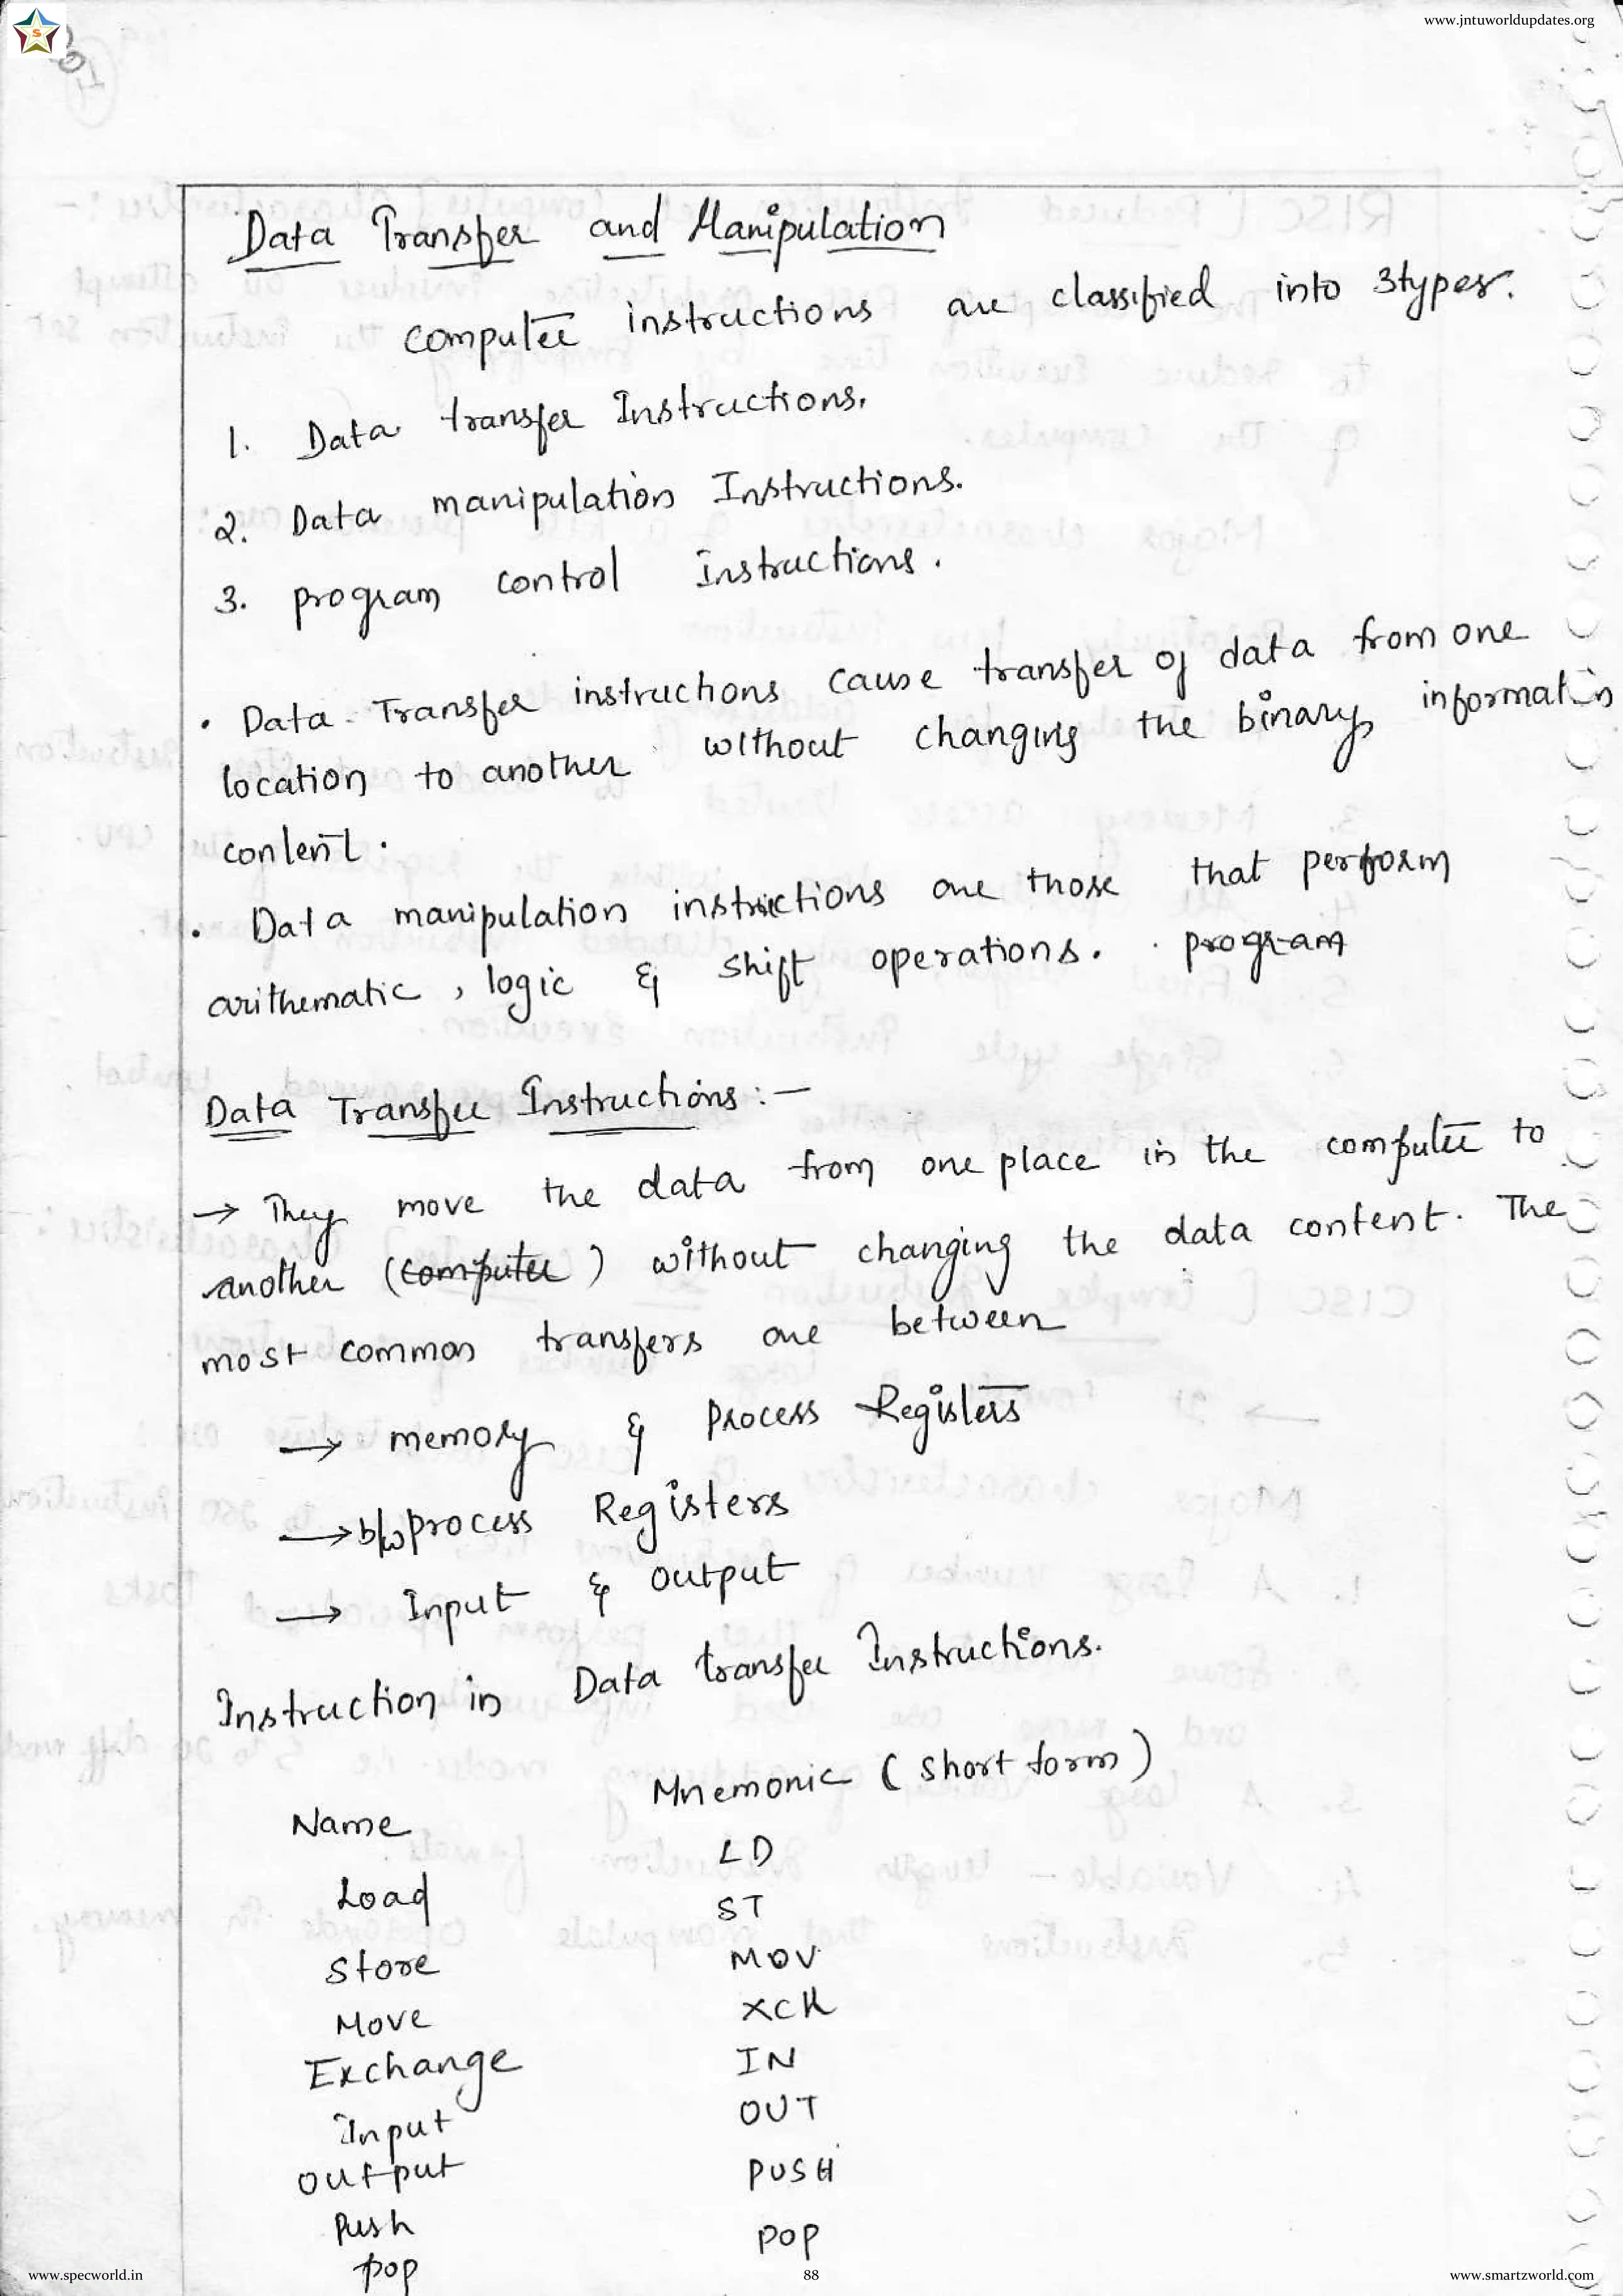 www.jntuworldupdates.org
S
Data Transfer and Manipulation
computer instructions are classified into 3types.
1. Data transfer Instructions.
2. Data manipulation Instructions.
3. program control Instructions.
• Data Transfer instructions cause transfer of data from one
location to another without changing the binary information
content.
• Data manipulation instructions are those that perform
arithematic, logic & shift operations. program
Data Transfer Instructions:-
→ They move the data from one place in the computer to
another (computer) without changing the data content. The
most common transfers are between
→ memory & process Registers
→ b/w process Registers
→ Input & output
Instruction in Data transfer Instructions.
Name Mnemonic (short form)
Load LD
Store ST
Move MOV
Exchange XCH
Input IN
output OUT
Push PUSH
pop POP
www.specworld.in 88 www.smartzworld.com